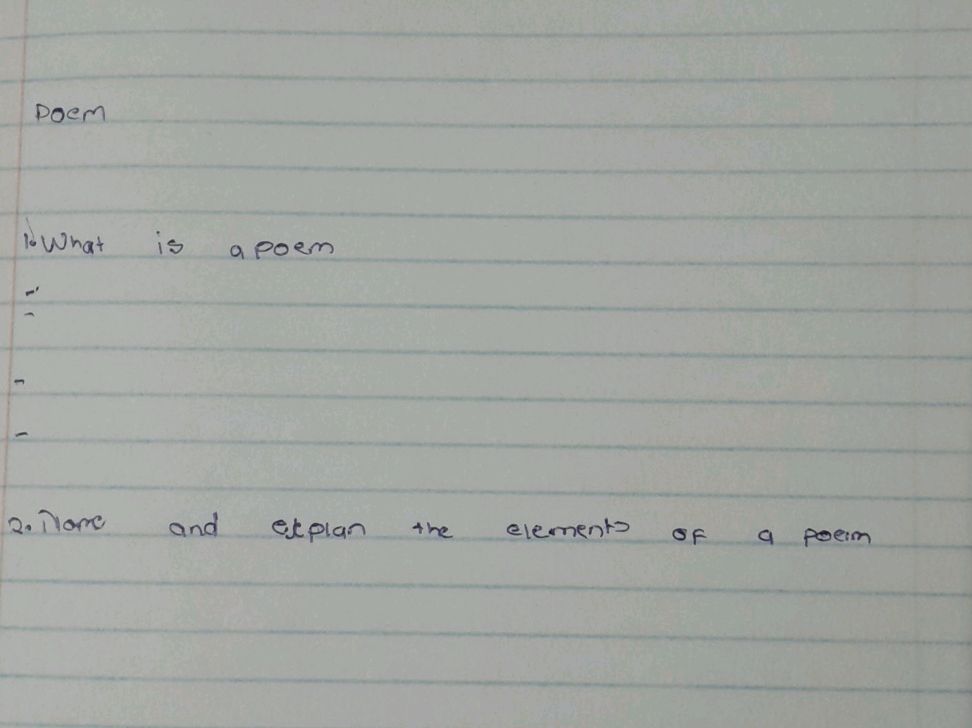 Poem
1. What is a poem
-
-
-
-
2. Name and explan the elements of a poem